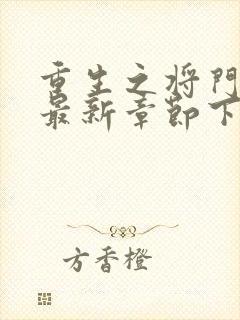 重生之将门
最新章节下
方香橙